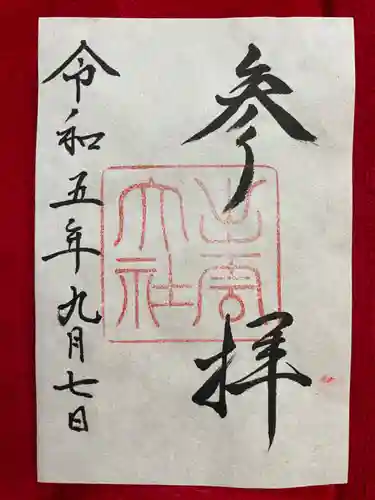 参拝
出雲大社
令和五年九月七日